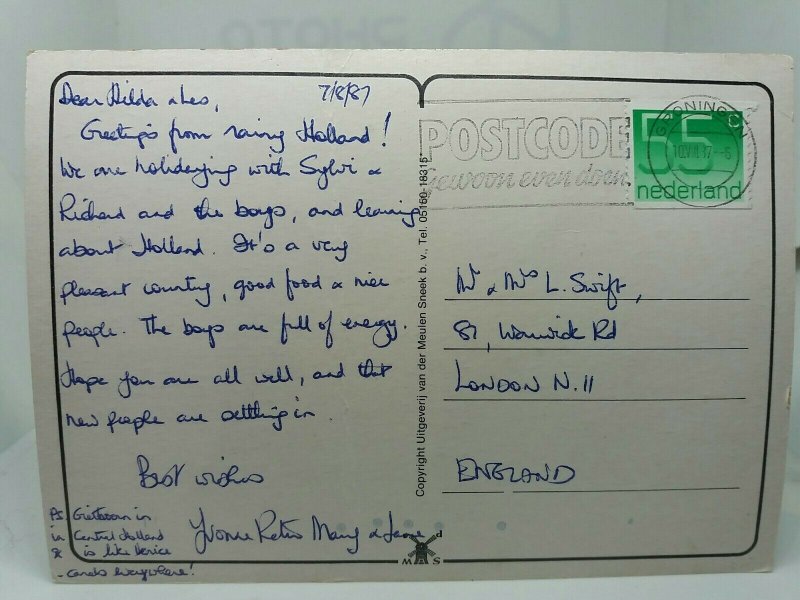 Dear Hilda & Les,
7/8/87
Greetings from rainy Holland!
We are holidaying with Sylvi &
Richard and the boys, and learning
about Holland. It's a very
pleasant country, good food & nice
people. The boys are full of energy.
Hope you are all well, and that
new people are settling in.
Best wishes
Yvonne Peter Mary & Jane
PS Giethoorn in
in Central Holland
& is like Venice
- canals everywhere!
Copyright Uitgeverij van der Meulen Sneek b.v., Tel. 05160-18315*
POSTCODE
gewoon even doen
GRONINGEN
55c
nederland
Mr & Mrs L. Swift,
87, Warwick Rd
LONDON N.11
ENGLAND
M S